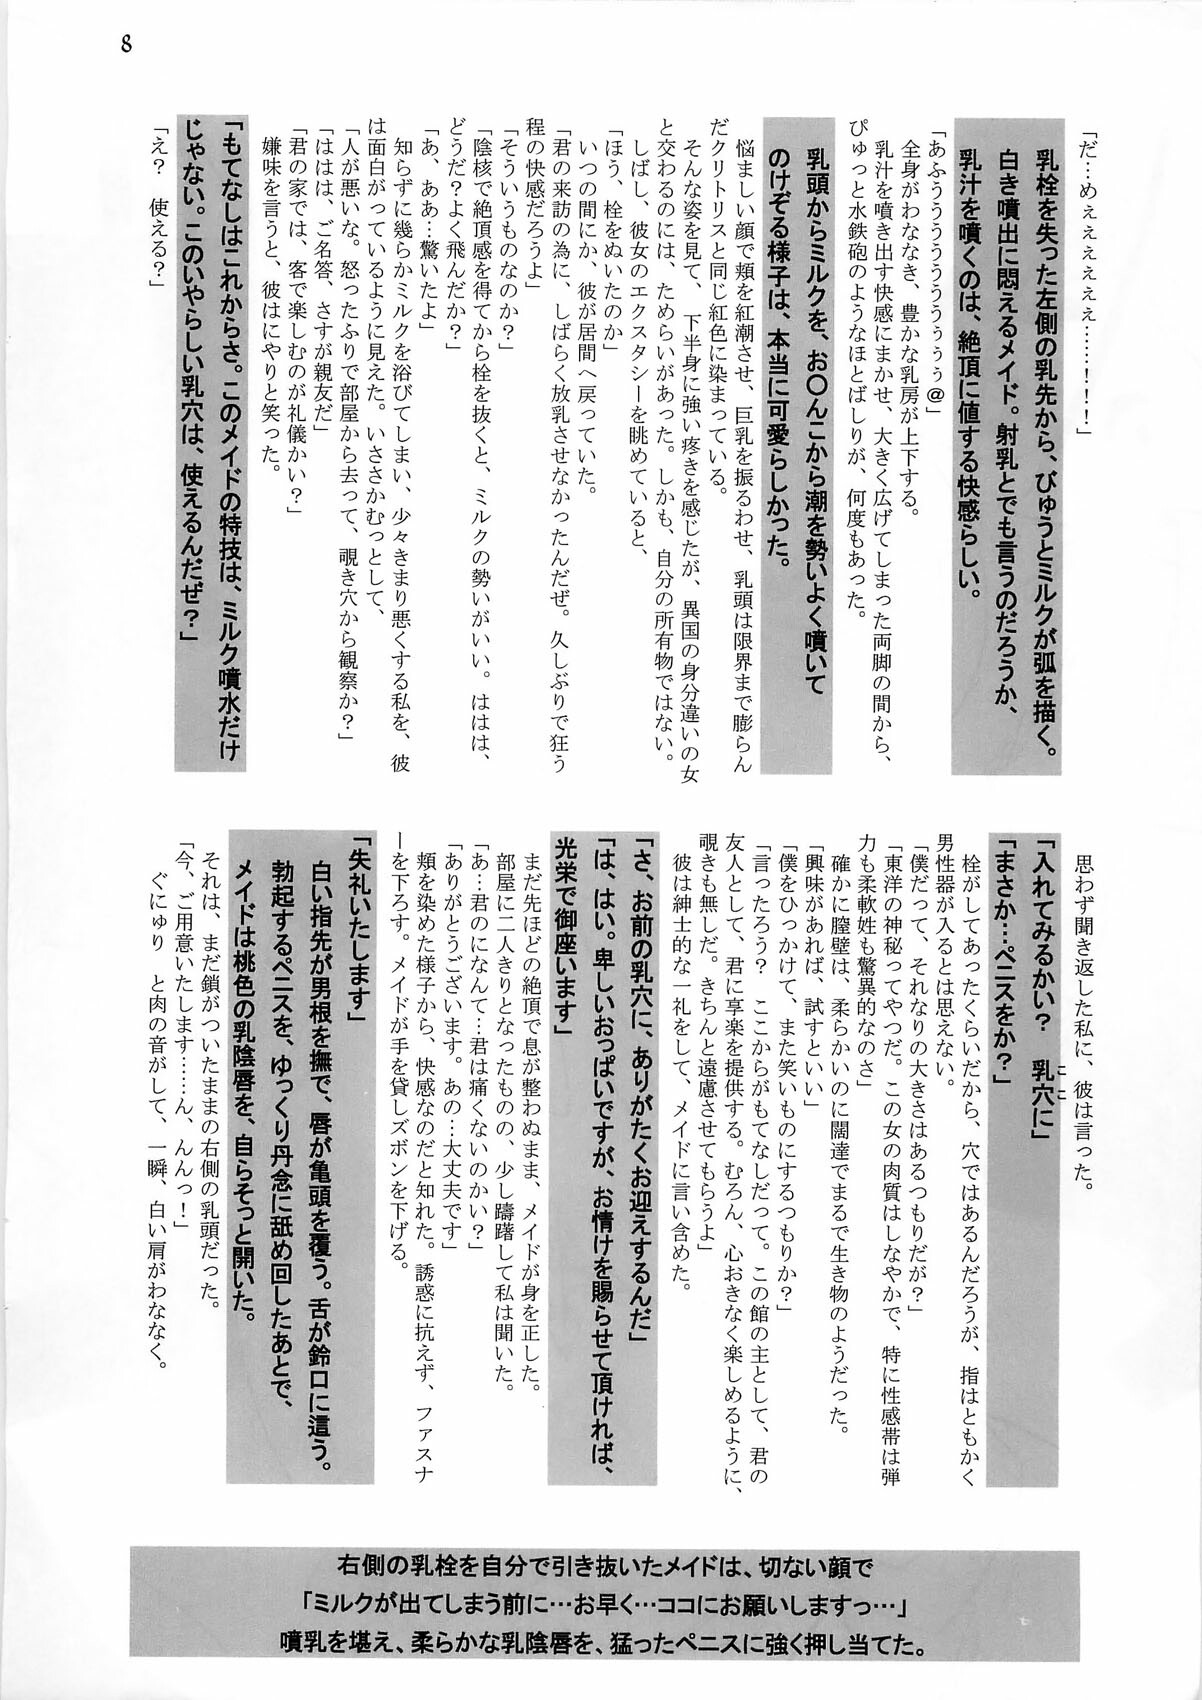 8
「だ…めぇぇぇぇぇぇ………！！！」
乳栓を失った左側の乳先から、びゅうとミルクが弧を描く。
白き噴出に悶えるメイド。射乳とでも言うのだろうか、
乳汁を噴くのは、絶頂に値する快感らしい。
「あふぅうううううぅぅぅ＠」
全身がわななき、豊かな乳房が上下する。
乳汁を噴き出す快感にまかせ、大きく広げてしまった両脚の間から、
ぴゅっと水鉄砲のようなほとばしりが、何度もあった。
乳頭からミルクを、お〇んこから潮を勢いよく噴いて
のけぞる様子は、本当に可愛らしかった。
悩ましい顔で頬を紅潮させ、巨乳を振るわせ、乳頭は限界まで膨らん
だクリトリスと同じ紅色に染まっている。
そんな姿を見て、下半身に強い疼きを感じたが、異国の身分違いの女
と交わるのには、ためらいがあった。しかも、自分の所有物ではない。
しばし、彼女のエクスタシーを眺めていると、
「ほう、栓をぬいたのか」
いつの間にか、彼が居間へ戻っていた。
「君の来訪の為に、しばらく放乳させなかったんだぜ。久しぶりで狂う
程の快感だろうよ」
「そういうものなのか？」
「陰核で絶頂感を得てから栓を抜くと、ミルクの勢いがいい。ははは、
どうだ？よく飛んだか？」
「あ、ああ…驚いたよ」
知らずに幾らかミルクを浴びてしまい、少々きまり悪くする私を、彼
は面白がっているように見えた。いささかむっとして、
「人が悪いな。怒ったふりで部屋から去って、覗き穴から観察か？」
「ははは、ご名答、さすが親友だ」
「君の家では、客で楽しむのが礼儀かい？」
嫌味を言うと、彼はにやりと笑った。
「もてなしはこれからさ。このメイドの特技は、ミルク噴水だけ
じゃない。このいやらしい乳穴は、使えるんだぜ？」
「え？　使える？」
思わず聞き返した私に、彼は言った。
「入れてみるかい？　乳穴に」
ここ
「まさか…ペニスをか？」
栓がしてあったくらいだから、穴ではあるんだろうが、指はともかく
男性器が入るとは思えない。
「僕だって、それなりの大きさはあるつもりだが？」
「東洋の神秘ってやつだ。この女の肉質はしなやかで、特に性感帯は弾
力も柔軟姓も驚異的なのさ」
確かに膣壁は、柔らかいのに闊達でまるで生き物のようだった。
「興味があれば、試すといい」
「僕をひっかけて、また笑いものにするつもりか？」
「言ったろう？　ここからがもてなしだって。この館の主として、君の
友人として、君に享楽を提供する。むろん、心おきなく楽しめるように、
覗きも無しだ。きちんと遠慮させてもらうよ」
彼は紳士的な一礼をして、メイドに言い含めた。
「さ、お前の乳穴に、ありがたくお迎えするんだ」
「は、はい。卑しいおっぱいですが、お情けを賜らせて頂ければ、
光栄で御座います」
まだ先ほどの絶頂で息が整わぬまま、メイドが身を正した。
部屋に二人きりとなったものの、少し躊躇して私は聞いた。
「あ…君のになんて…君は痛くないのかい？」
「ありがとうございます。あの…大丈夫です」
頬を染めた様子から、快感なのだと知れた。誘惑に抗えず、ファスナ
ーを下ろす。メイドが手を貸しズボンを下げる。
「失礼いたします」
白い指先が男根を撫で、唇が亀頭を覆う。舌が鈴口に這う。
勃起するペニスを、ゆっくり丹念に舐め回したあとで、
メイドは桃色の乳陰唇を、自らそっと開いた。
それは、まだ鎖がついたままの右側の乳頭だった。
「今、ご用意いたします……ん、んんっ！」
ぐにゅり　と肉の音がして、一瞬、白い肩がわななく。
右側の乳栓を自分で引き抜いたメイドは、切ない顔で
「ミルクが出てしまう前に…お早く…ココにお願いしますっ…」
噴乳を堪え、柔らかな乳陰唇を、猛ったペニスに強く押し当てた。